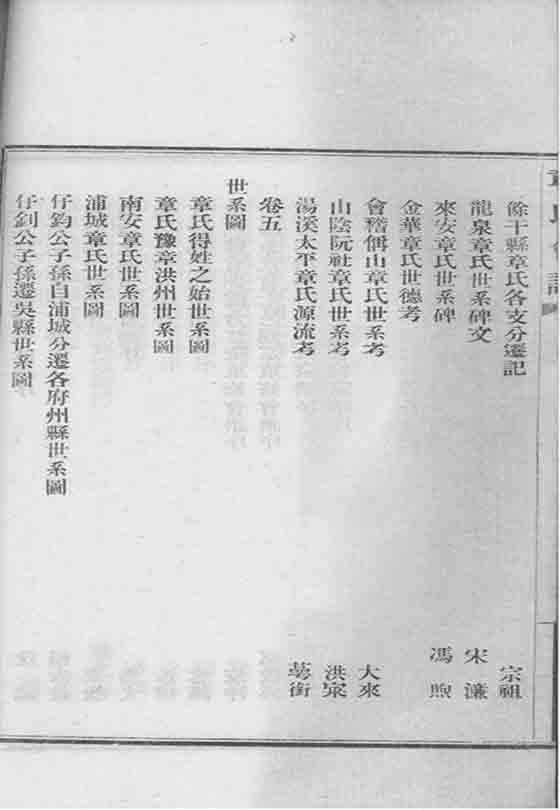 餘干縣章氏各支分遷記 宗祖
龍泉章氏世系碑文 宋濂
來安章氏世系碑 馮煦
金華章氏世德考
會稽偁山章氏世系考 大來
山陰阮社章氏世系考 洪寀
湯溪太平章氏源流考 萼銜
卷五
世系圖
章氏得姓之始世系圖
章氏豫章洪州世系圖
南安章氏世系圖
浦城章氏世系圖
仔鈞公子孫自浦城分遷各府州縣世系圖
仔釗公子孫遷吳縣世系圖